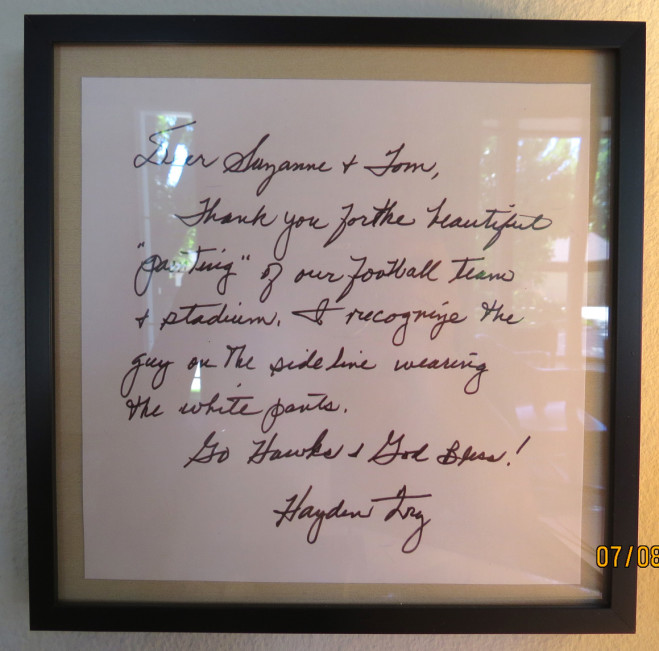 Dear Suzanne & Tom,
Thank you for the beautiful
"painting" of our football team
& stadium. I recognize the
guy on the sideline wearing
the white pants.
Go Hawks & God Bless!
Hayden Fry
07/08